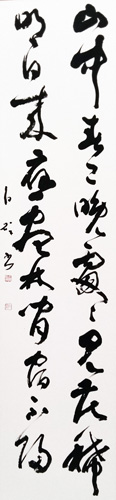 山中春已晚處々見花稀
明日来應盡林間宿不歸